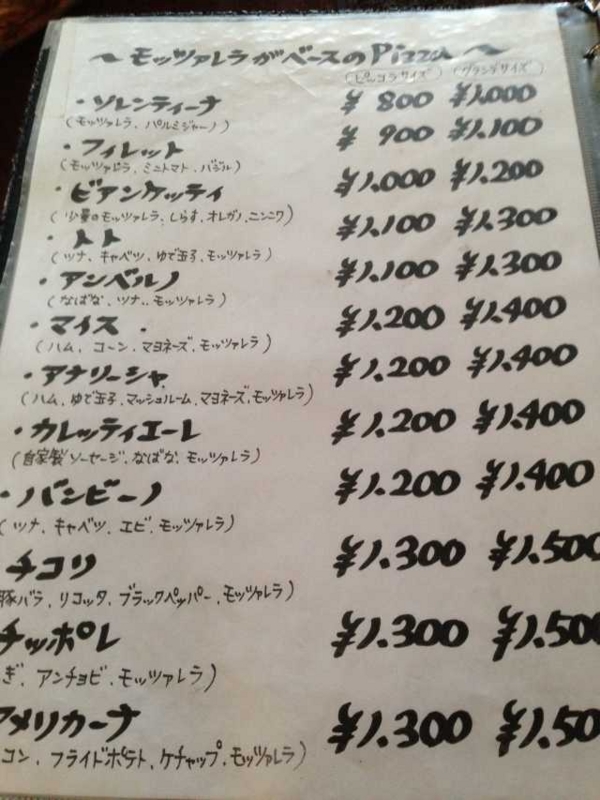 〜モッツァレラがベースのPizza〜
(ピッコラサイズ) (グランデサイズ)
・ソレンティーナ ¥800 ¥1,000
(モッツァレラ、パルミジャーノ)
・フィレット ¥900 ¥1,100
(モッツァレラ、ミニトマト、バジル)
・ビアンケッティ ¥1,000 ¥1,200
(少量のモッツァレラ、しらす、オレガノ、ニンニク)
・トト ¥1,100 ¥1,300
(ツナ、キャベツ、ゆで玉子、モッツァレラ)
・アンベルノ ¥1,100 ¥1,300
(なばな、ツナ、モッツァレラ)
・マイス ¥1,200 ¥1,400
(ハム、コーン、マヨネーズ、モッツァレラ)
・アナリーシャ ¥1,200 ¥1,400
(ハム、ゆで玉子、マッシュルーム、マヨネーズ、モッツァレラ)
・カレッティエーレ ¥1,200 ¥1,400
(自家製ソーセージ、なばな、モッツァレラ)
・バンビーノ ¥1,200 ¥1,400
(ツナ、キャベツ、エビ、モッツァレラ)
チコリ ¥1,300 ¥1,500
豚バラ、リコッタ、ブラックペッパー、モッツァレラ)
チッポレ ¥1,300 ¥1,500
ぎ、アンチョビ、モッツァレラ)
アメリカーナ ¥1,300 ¥1,50
コン、フライドポテト、ケチャップ、モッツァレラ)